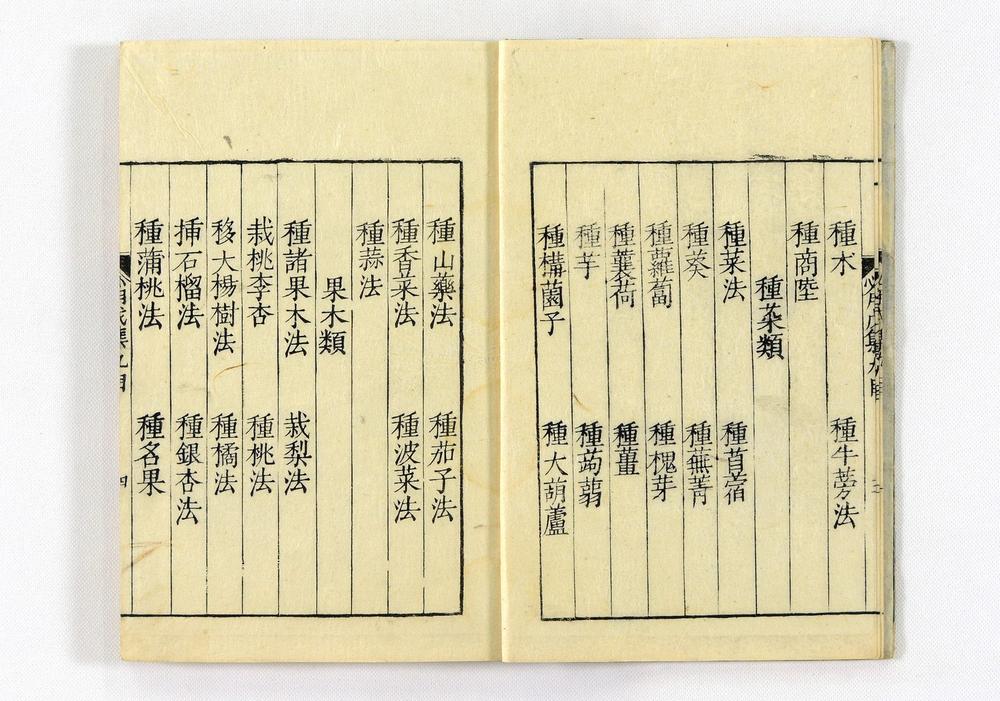 種朮　種牛蒡法
種商陸
種菜類
種菜法　種苜蓿
種葵　種蕪菁
種蘿蔔　種槐芽
種蘘荷　種薑
種芋　種蒟蒻
種構菌子　種大葫蘆
種山藥法　種茄子法
種香菜法　種波菜法
種蒜法
果木類
種諸果木法　栽梨法
栽桃李杏　種桃法
移大楊樹法　種橘法
揷石榴法　種銀杏法
種蒲桃法　種名果
四